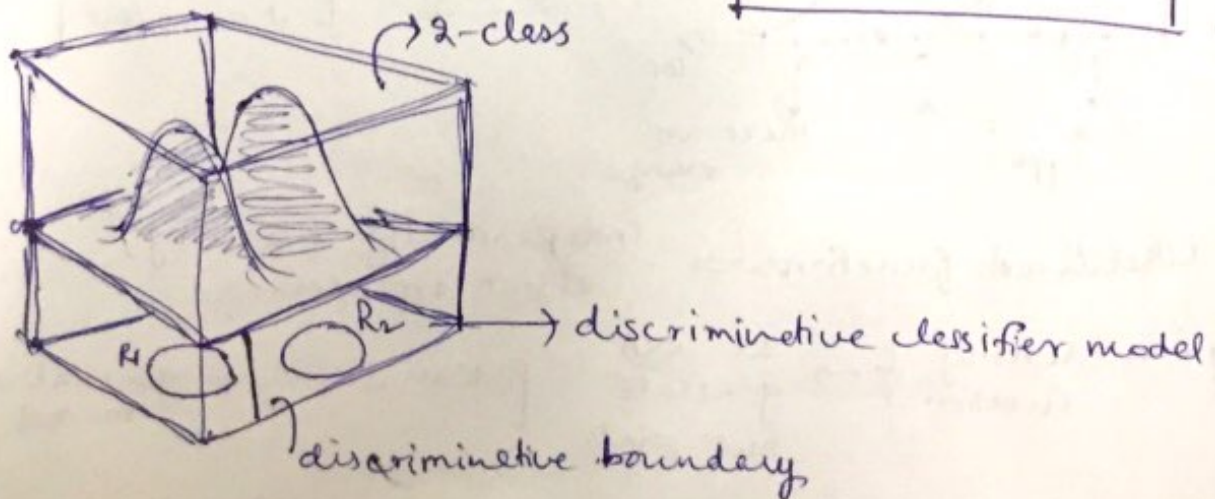 2-class
R1
R2
discriminetive clessifier model
discriminetive boundary